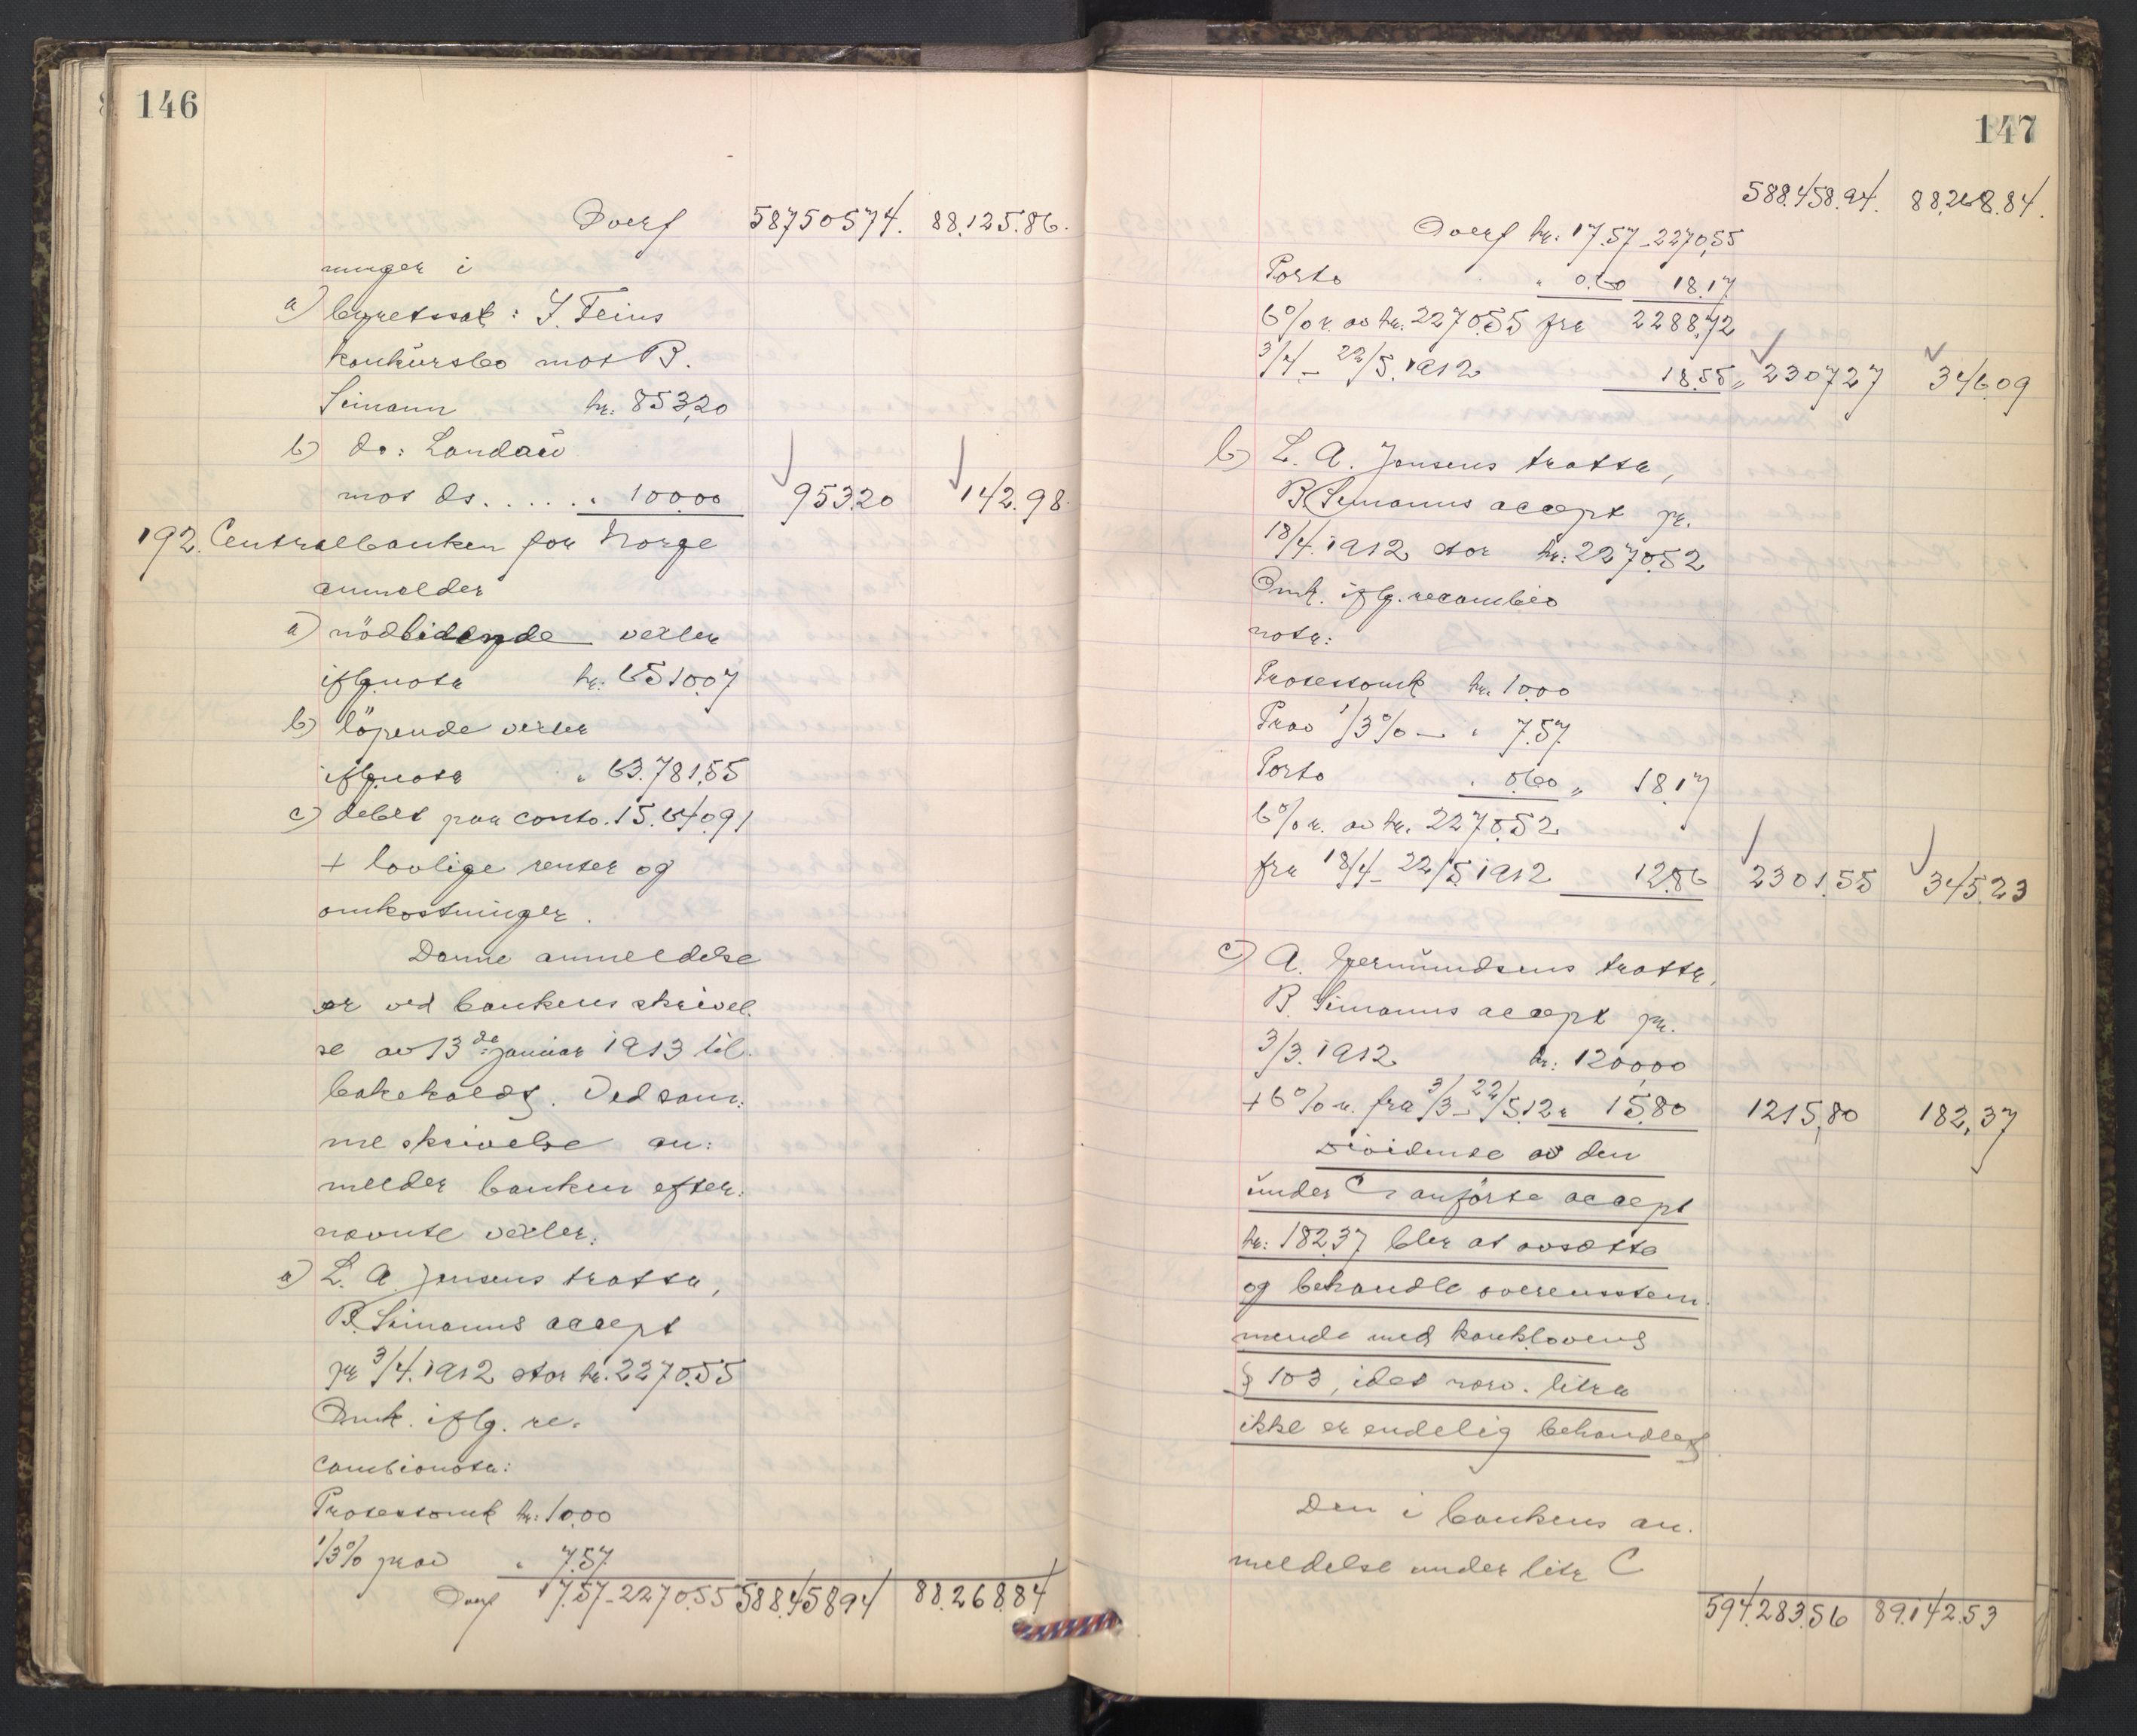 146
Overf 587505 74. 88.125.86.
ninger i
a) byretssak: I. Feins
konkursbo mot B.
Simann kr: 853,20
b) do: Landau
mot ds. . . . . " 100.00 953.20 142.98.
192. Centralbanken for Norge
anmelder
a) nödlidende vexler
iflg nota kr: 6510.07
b) löpende vexler
iflg nota " 63.781,55
c) debet paa conto. 15.640.91
+ lovlige renter og
omkostninger.
Denne anmeldelse
er ved bankens skrivel-
se av 13de januar 1913 til-
bakekaldt. Ved sam-
me skrivelse an-
melder banken efter-
nævnte vexler:
a) L. A. Jensens tratta,
B. Simanns accept
pr 3/4. 1912 stor kr. 2270.55
Omk. iflg. re-
cambionota:
Protestomk kr: 10.00
1/3% prov " 7.57
Overf 17.57 - 2270.55 588.458 94 88.268.84
147
588.458.94. 88.268.84.
Overf kr: 17.57 - 2270,55
Porto " 0.60 18.17
6% r. av kr. 2270.55 fra 2288,72
3/4 - 22/5. 1912 18.55 " 2307 27 346.09
b) L. A. Jensens tratta,
B. Simanns accept pr.
18/4. 1912 stor kr: 2270.52
Omk. iflg. recambio
nota:
Protestomk kr. 10.00
Prov 1/3% — " 7.57
Porto " 0.60 " 18.17
6% r. av kr. 2270.52
fra 18/4 - 22/5 1912 12.86 2301.55 345.23
c) A. Germundsens tratta,
B. Simanns accept pr.
3/3. 1912 kr: 1200,00
+ 6% r. fra 3/3 - 22/5.12 " 15.80 1215,80 182,37
Dividende av den
under C anførte accept
kr: 182.37 blir at avsætte
og behandle overensstem-
mende med konkl.ovens
§ 103, idet nævn. litra
ikke er endelig behandlet.
Den i bankens an-
meldelse under litr C
594.283.56 89.142.53